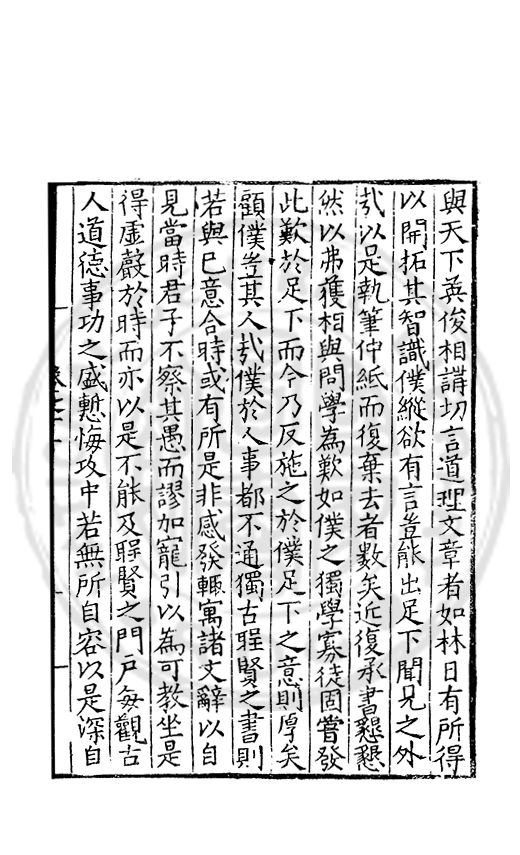 與天下英俊相講切言道理文章者如林日有所得
以開拓其智識僕縱欲有言豈能出足下聞見之外
㢤以是執筆伸紙而復棄去者數矣近復承書懇懇
然以弗獲相與問學為歎如僕之獨學寡徒固嘗發
此歎於足下而今乃反施之於僕足下之意則厚矣
顧僕豈其人㢤僕於人事都不通獨古聖賢之書則
若與已意合時或有所是非感發輒寓諸文辭以自
見當時君子不察其愚而謬加寵引以為可教坐是
得虛聲於時而亦以是不能及聖賢之門戶每觀古
人道德事功之盛慙悔攻中若無所自容以是深自